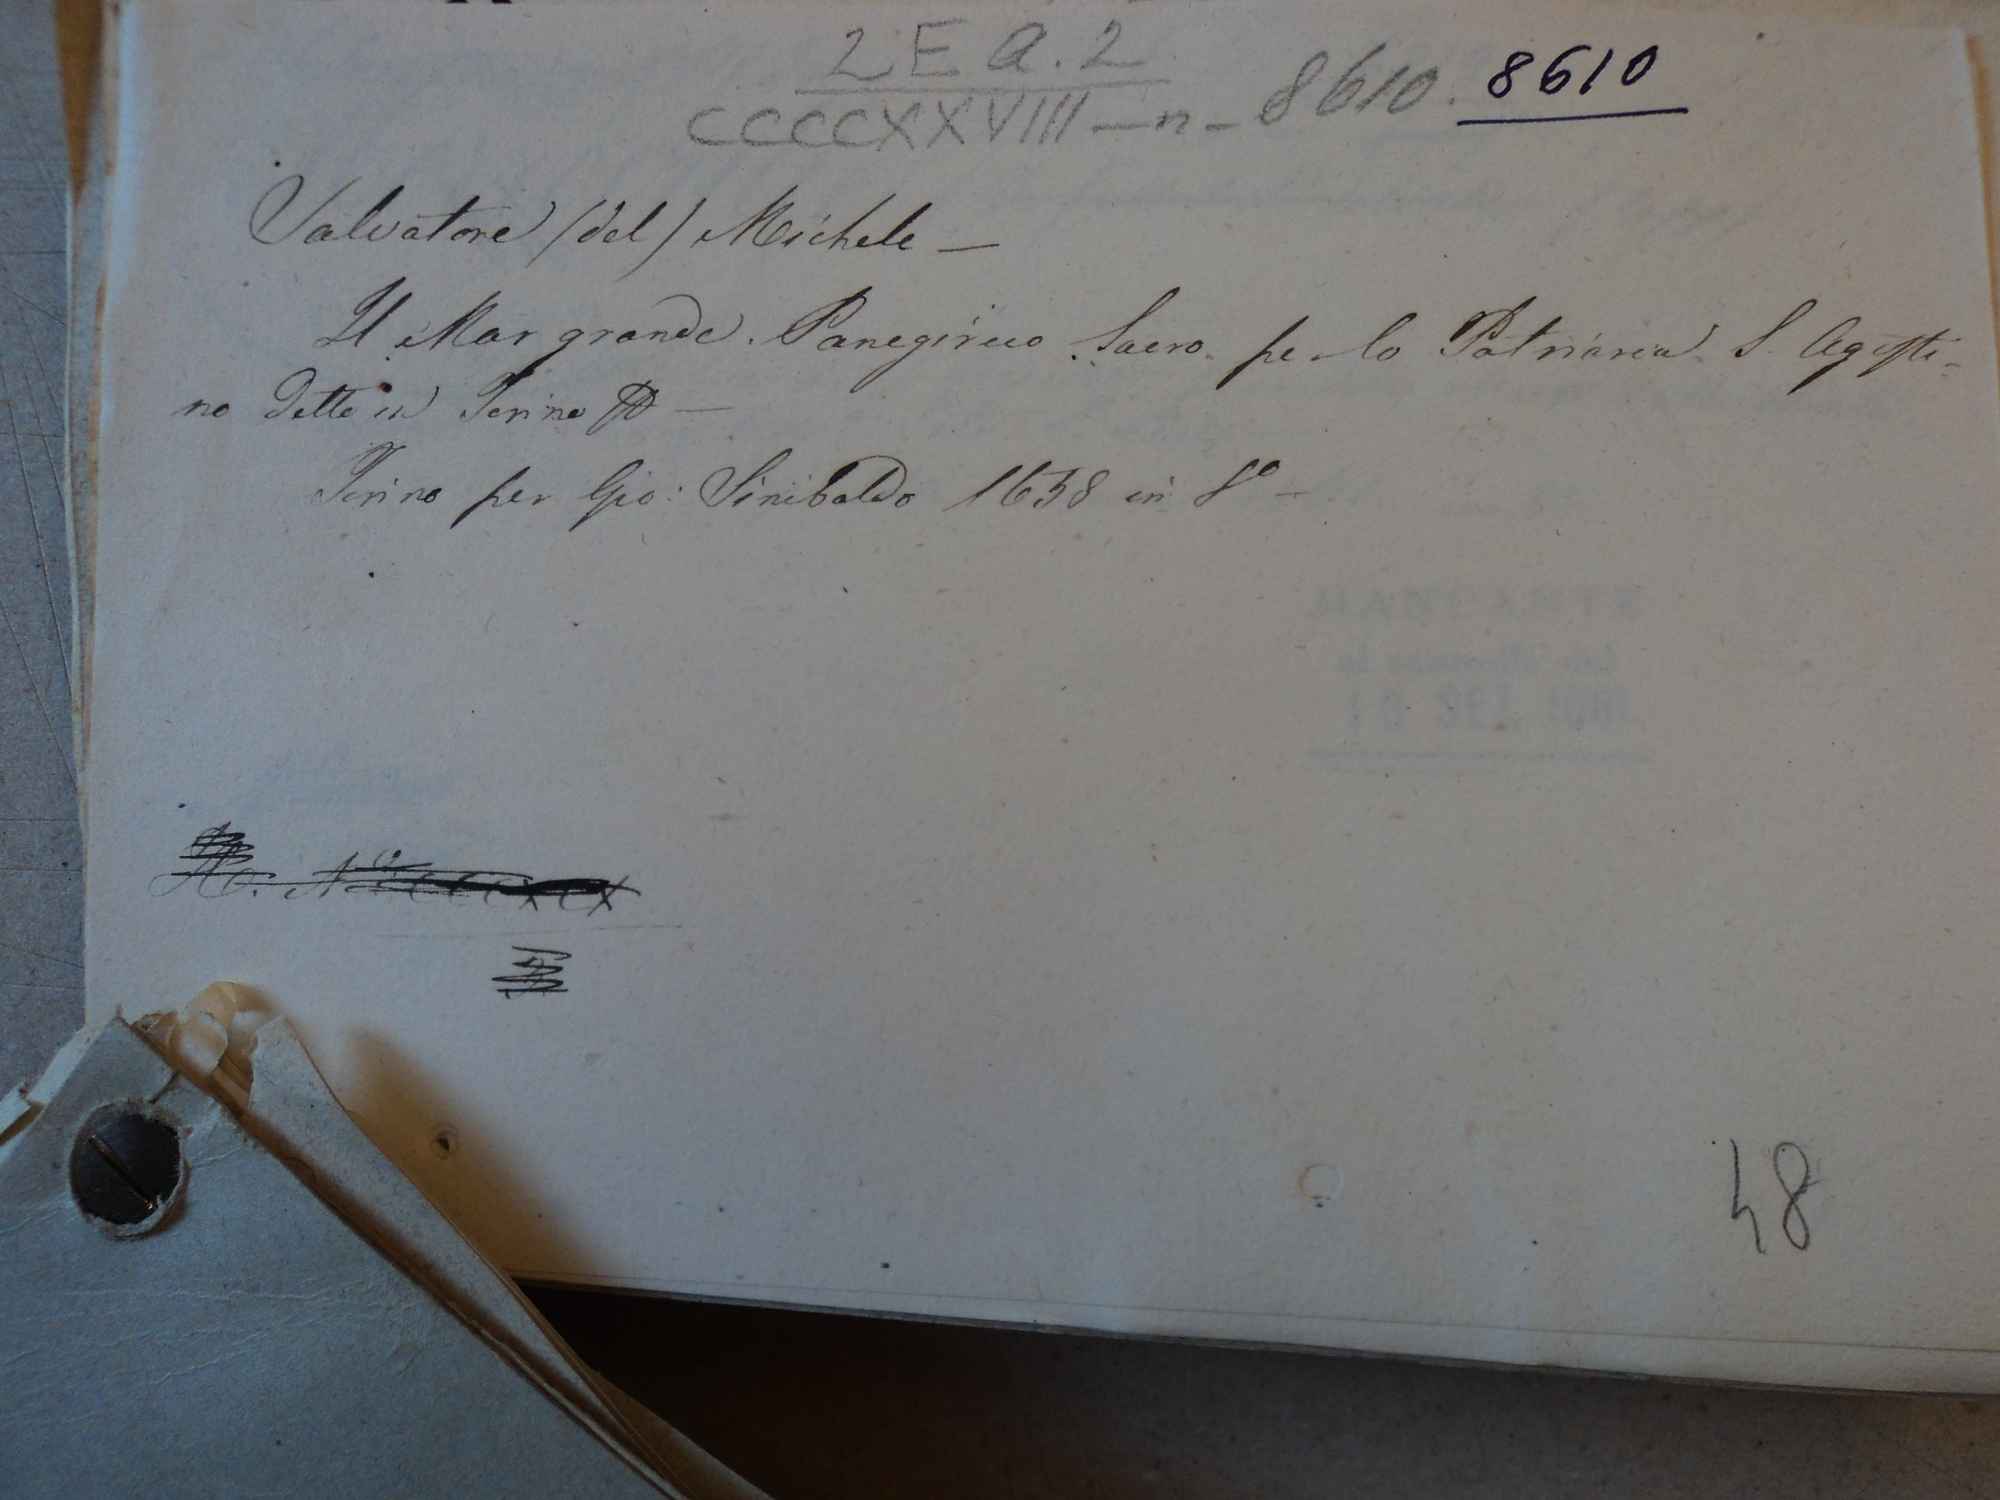 2 E a. 2
CCCCXXVIII — n - 8610. 8610
Salvatore (del) Michele —
Il Mar grande. Panegirico Sacro per lo Patriarca S. Agosti-
no detto in Torino —
Torino per Gio: Sinibaldo 1658 in 8º —
MANCANTE
al controllo del
10 SET.
48